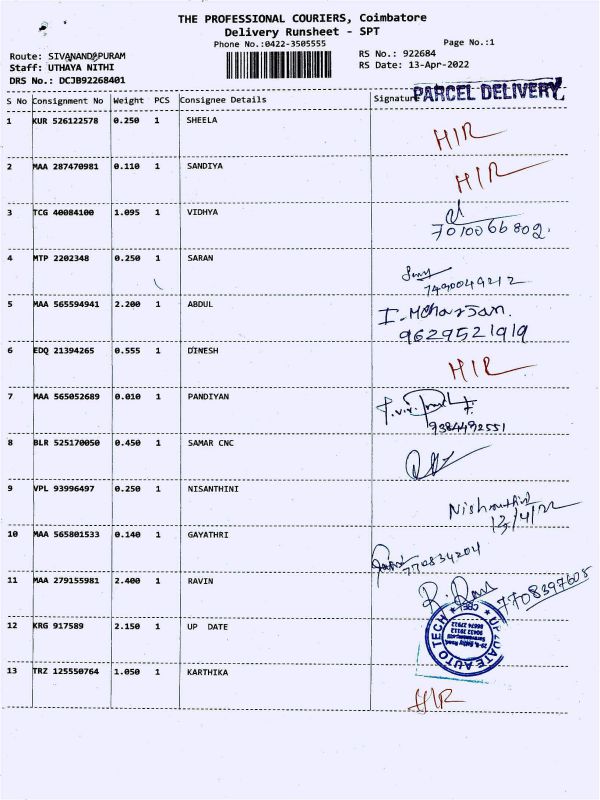 THE PROFESSIONAL COURIERS, Coimbatore
Delivery Runsheet - SPT
Phone No.:0422-3505555
Page No.:1
Route: SIVANANDAPURAM
RS No.: 922684
Staff: UTHAYA NITHI
RS Date: 13-Apr-2022
DRS No.: DCJB92268401
PARCEL DELIVERY
S No Consignment No Weight PCS Consignee Details Signature
1 KUR 526122578 0.250 1 SHEELA
HIR
2 MAA 287470981 0.110 1 SANDIYA
HIR
3 TCG 40084100 1.095 1 VIDHYA
7010066802.
4 MTP 2202348 0.250 1 SARAN
7490049212
5 MAA 565594941 2.200 1 ABDUL
9629521919
6 EDQ 21394265 0.555 1 DINESH
HIR
7 MAA 565052689 0.010 1 PANDIYAN
9384492551
8 BLR 525170050 0.450 1 SAMAR CNC
9 VPL 93996497 0.250 1 NISANTHINI
13/4/22
10 MAA 565801533 0.140 1 GAYATHRI
770834204
11 MAA 279155981 2.400 1 RAVIN
7708397605
12 KRG 917589 2.150 1 UP DATE
UPDATE AUTO TECH
13 TRZ 125550764 1.050 1 KARTHIKA
HIR